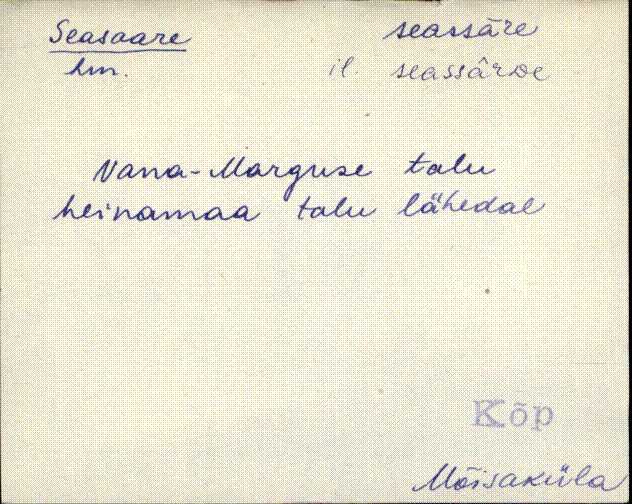 Seasaare seassāre
hm. il. seassârDe
Vana-Marguse talu
heinamaa talu lähedal
Kõp
Mõisaküla